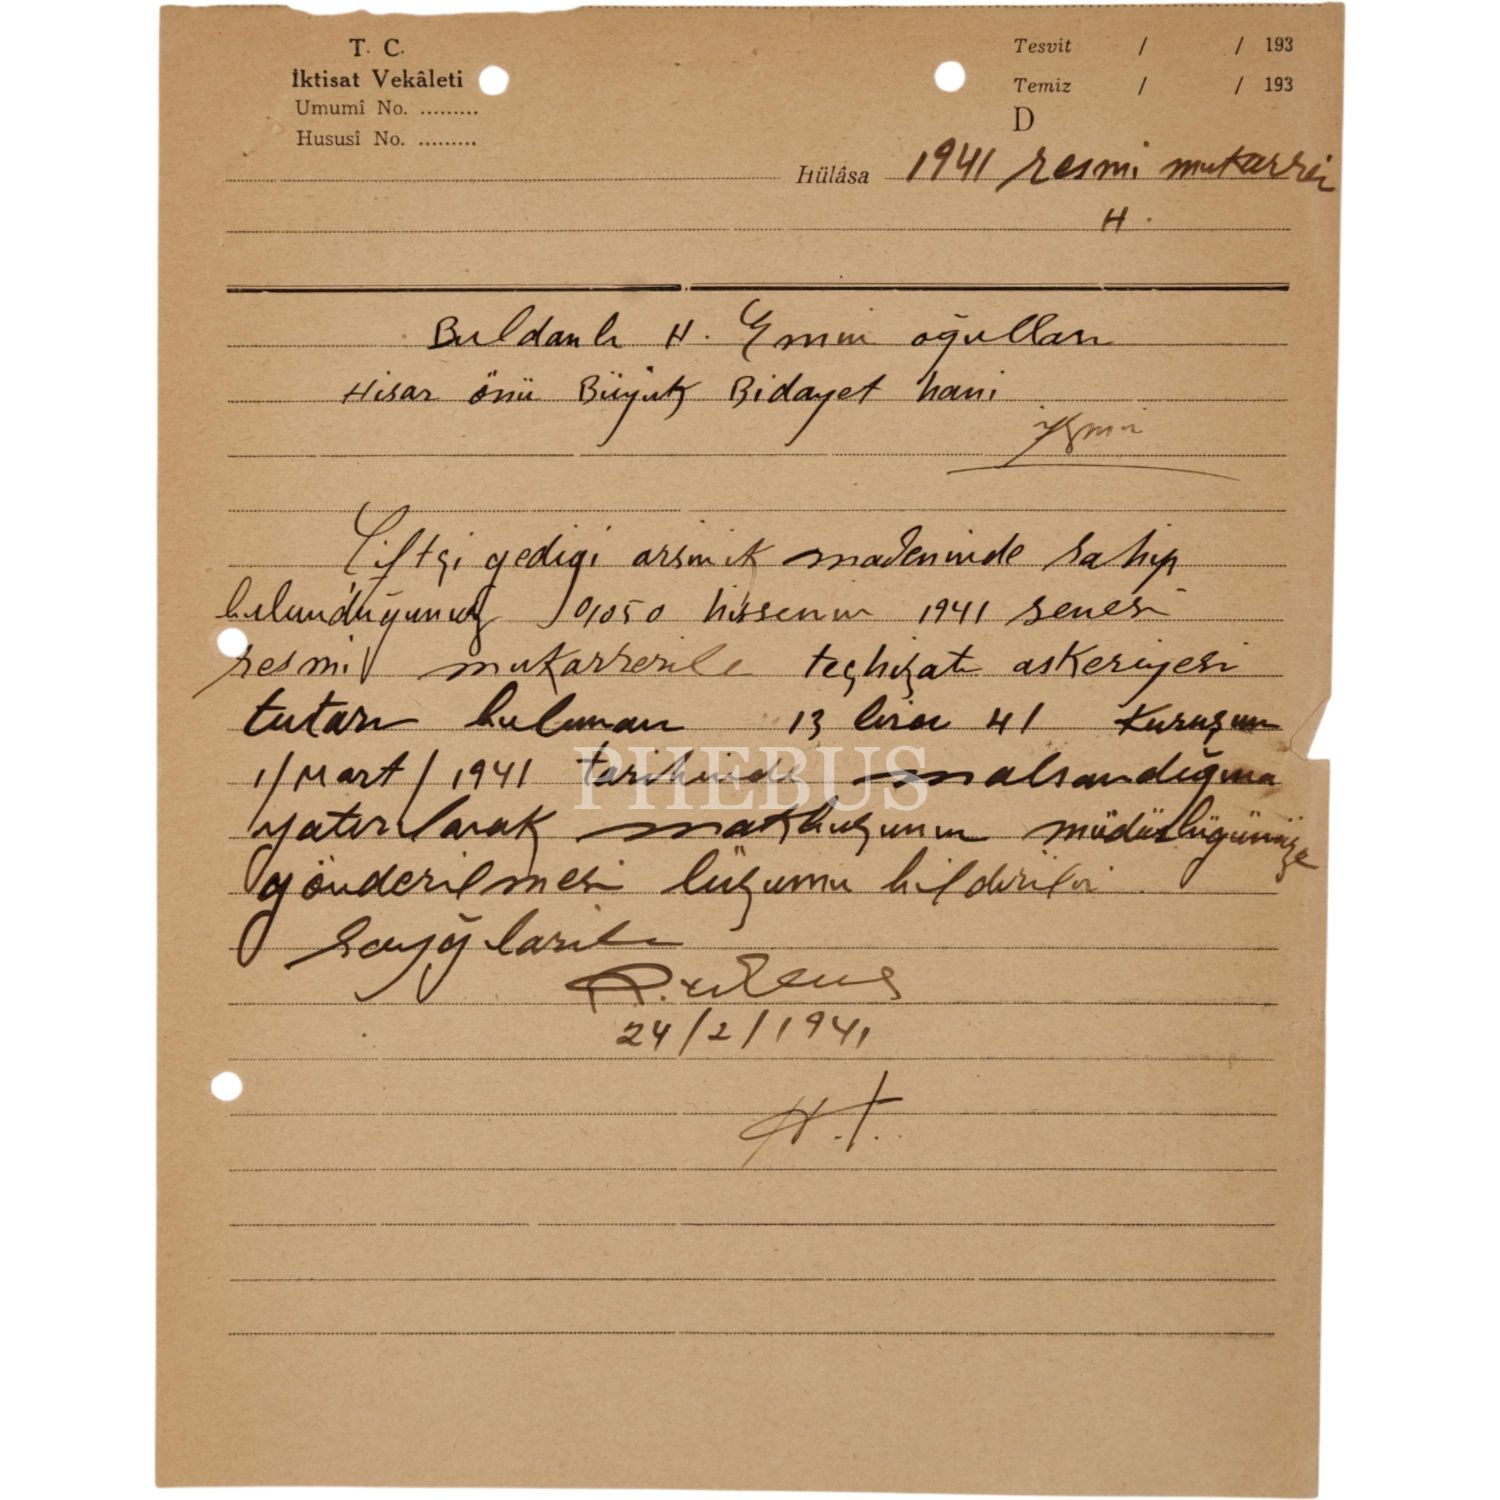 T. C.
İktisat Vekâleti
Umumî No. .........
Hususî No. .........
Tesvit / / 193
Temiz / / 193
D
Hülâsa 1941 resmi mukarreri
H.
Buldanlı H. Emin oğulları
Hisar önü Büyük Bidayet hani
izmir
Çiftçi gediği arsinik madeninde sahip
bulunduğunuz 0,050 hissenin 1941 senesi
resmi mukarrerile teçhizatı askeriyesi
tutarı bulunan 13 lira 41 Kuruşun
1/Mart/1941 tarihinde malsandığına
yatırılarak makbuzunun müdürlüğümüze
gönderilmesi lüzumu bildirilir.
Saygılarile
24/2/1941
PHEBUS